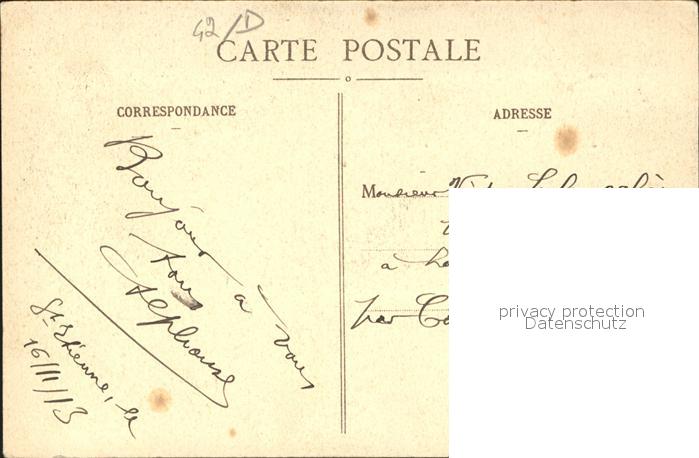 42/D
CARTE POSTALE
CORRESPONDANCE
ADRESSE
Bonjour à vous
tous
St Etienne, le
16/11/13
Monsieur
à
par
privacy protection
Datenschutz